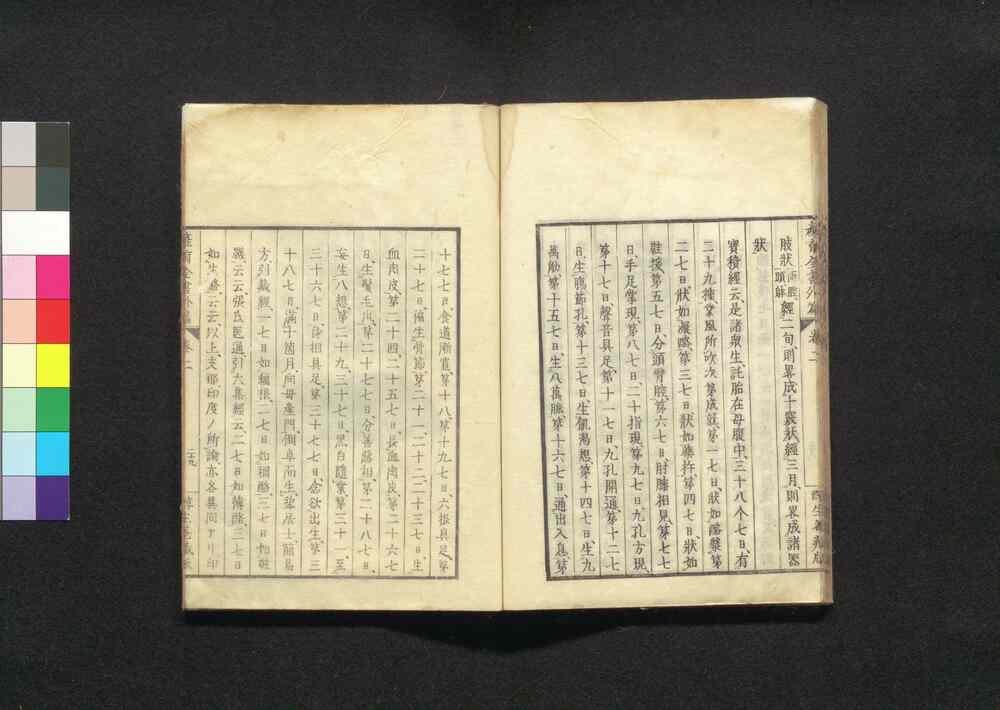 肢狀 頭 經二旬、則畧成十 狀經三月、則畧成諸器
狀
寶積經云、是諸衆生、託胎在母腹中、三十八个七日、有
二十九種業風所吹次第成就、第一七日、狀如酪漿、第
二七日、狀如凝酪、第三七日、狀如藥杵、第四七日、狀如
鞋 、第五七日、分頭臂 、第六七日、肘膝相見、第七七
日、手足掌現、第八七日、二十指現、第九七日、九孔方現、
第十七日、聲音具足、第十一七日、九孔開通、第十二七
日、生腸節孔、第十三七日、生飢渴想、第十四七日、生九
萬 、第十五七日、生八萬脈、第十六七日、通出入息、第
卷二
十七七日、食道漸寬、第十八、第十九七日、六根具足、第
二十七日、徧生骨節、第二十一、二十二、二十三七日、生
血肉皮、第二十四、二十五七日、長血肉皮、第二十六七
日、生髮毛爪、第二十七七日、分善惡相、第二十八七日、
妄生八想、第二十九、三十七日、黑白隨業、第三十一、至
三十六七日、 相具足、第三十七七日、念欲出生、第三
十八七日、滿十箇月、向母產門、倒卓而生、 居士、簡易
方、引藏經、一七日如 、二七日如稠酪、三七日如
云云、張氏醫通、引六集經云、二七日如 酪、三七日
如生 云云、以上、支那印度ノ所論亦各異同アリ印
卷二